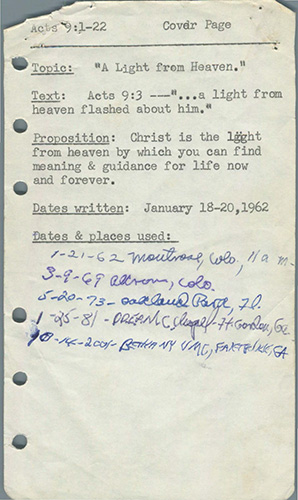 Acts 9:1-22 Cover Page
Topic: "A Light from Heaven."
Text: Acts 9:3 ---"...a light from
heaven flashed about him."
Proposition: Christ is the light
from heaven by which you can find
meaning & guidance for life now
and forever.
Dates written: January 18-20,1962
Dates & places used:
1-21-62 Montrose, Colo, 11 a.m.
3-9-69 Colo.
5-20-73 - Oakland Park, Fl.
1-25-81 - Chapel - Ft Gordon, Ga
-14-2001 - BETHANY UMC, GA